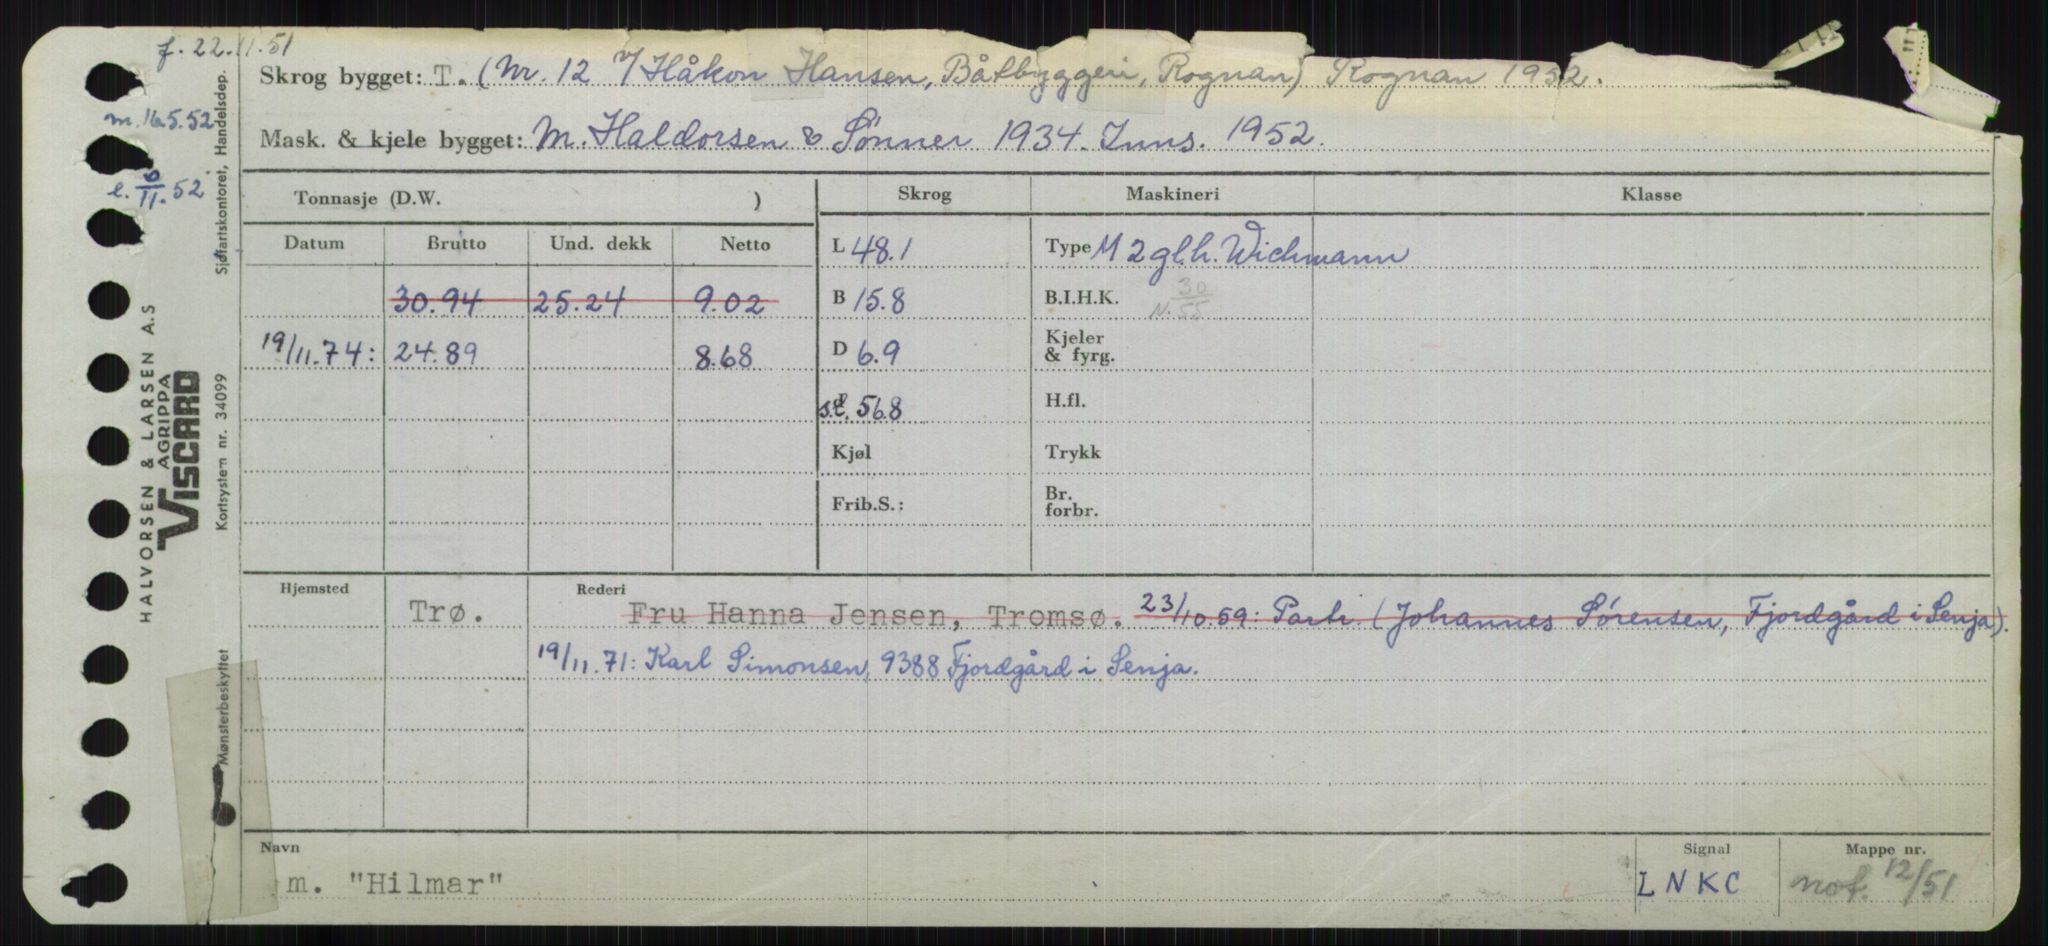 f. 22.11.51
Skrog bygget: T. (Nr. 12 v/ Håkon Hansen, Båtbyggeri, Rognan) Rognan 1952.
m. 16.5.52
Mask. & kjele bygget: M. Haldorsen & Sønner 1934. Inns. 1952.
e. 6/11.52
Tonnasje (D.W. ) Skrog Maskineri Klasse
Datum Brutto Und. dekk Netto L 48.1 Type M 2 gl.h. Wichmann
30.94 25.24 9.02 B 15.8 B.I.H.K. 30
N. 55
19/11.74: 24.89 8.68 D 6.9 Kjeler & fyrg.
s.l. 56.8 H.fl.
Kjøl Trykk
Frib.S.: Br. forbr.
Hjemsted Rederi
Trø. Fru Hanna Jensen, Tromsø. 23/10.59: Partr. (Johannes Sørensen, Fjordgård i Senja).
19/11.71: Karl Simonsen, 9388 Fjordgård i Senja.
Navn Signal Mappe nr.
m. "Hilmar" LNKC not. 12/51
Sjøfartskontoret, Handelsdep.
HALVORSEN & LARSEN A.S
AGRIPPA
VISCARD
Kortsystem nr. 34099
Mønsterbeskyttet